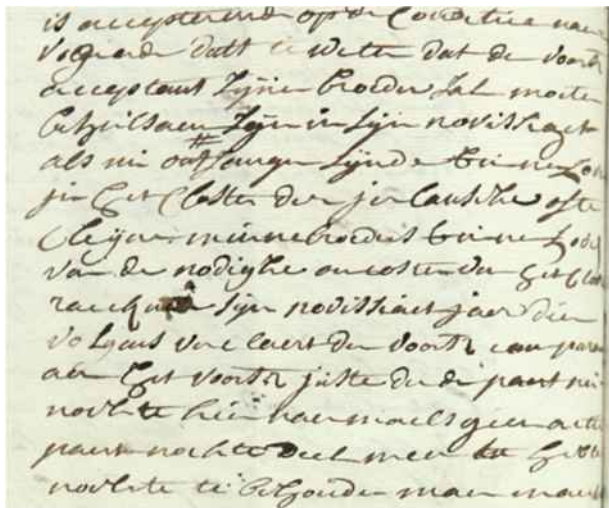 is accepterende op de Conditie naer
volgende datt te weten dat de voors
acceptant Zijnen broeder sal moeten
behulsaem Zijn in sijn novissiaet
als nu ontfangen sijnde binnen Lov
jn het Clooster der jerlantsche ofte
Cleijne minnebroeders binnen Lov
van de nodighe oncosten die het
sijn novissiaet jaer dien
volgens verclaert den voors comparan
aen het voors juste derde paert
nochte hier naermaels geen actie
paert nochte deel meer te hebben
nochte te behouden maer